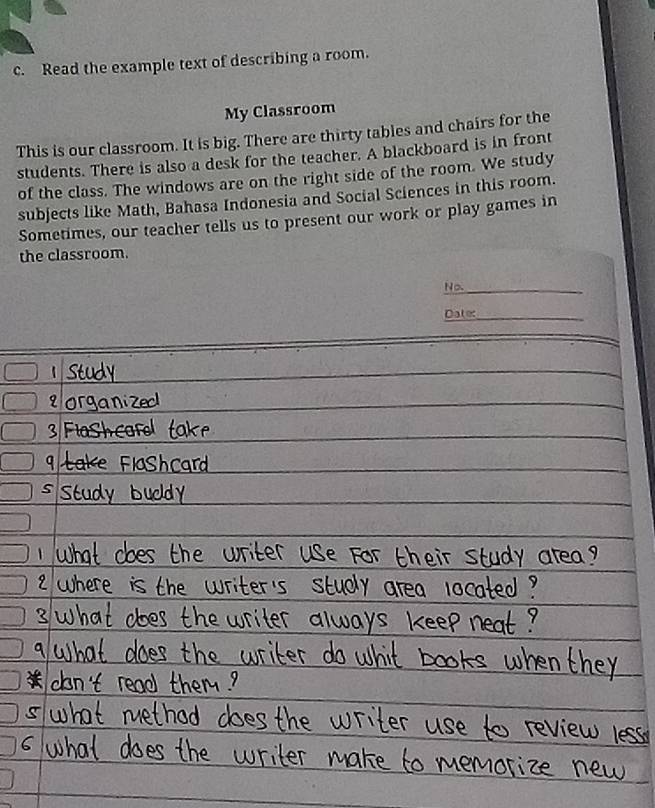 c. Read the example text of describing a room.
My Classroom
This is our classroom. It is big. There are thirty tables and chairs for the
students. There is also a desk for the teacher. A blackboard is in front
of the class. The windows are on the right side of the room. We study
subjects like Math, Bahasa Indonesia and Social Sciences in this room.
Sometimes, our teacher tells us to present our work or play games in
the classroom.
No.
Date:
1 study
2 organized
3 Flashcard take
4 take Flashcard
5 study buddy
1 what does the writer use For their study area?
2 where is the writer's study area located?
3 what does the writer always keep neat?
4 what does the writer do whit books when they
don't read them?
5 what method does the writer use to review less
6 what does the writer make to memorize new